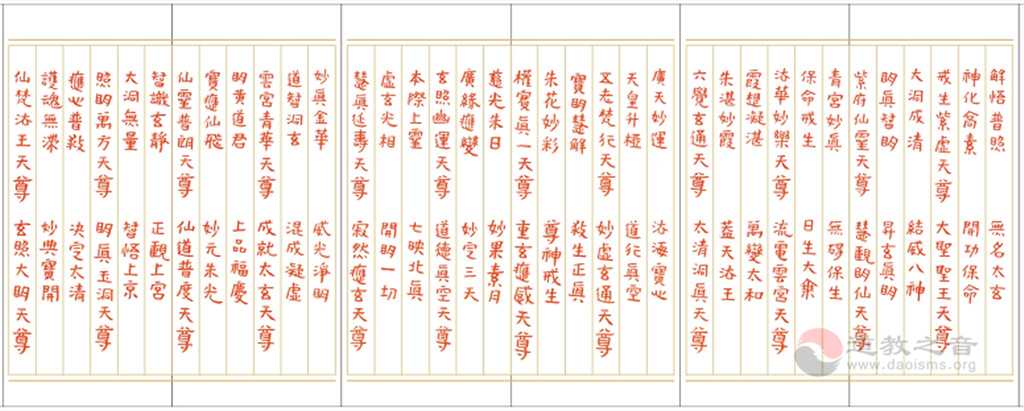 解悟普照 無名太玄
神化 素 開功保命
戒生紫虛天尊 大聖聖王天尊
大洞成清 結感八神
明真智明 昇玄真明
紫府仙靈天尊 慧觀明仙天尊
青宮妙真 無礙保生
保命戒生 日生大乘
法華妙樂天尊 流電雲宮天尊
霞想凝湛 萬變太和
朱湛妙霞 蓋天法王
六覺玄通天尊 太清洞真天尊
廣天妙運 法海寶心
天皇升極 道行真空
五老梵行天尊 妙虛玄通天尊
寶明慧解 救生正真
朱花妙彩 尊神戒生
權實真一天尊 重玄應感天尊
慈光朱日 妙果素月
廣緣應變 妙定三天
玄照幽運天尊 道德真空天尊
本際上靈 七映北真
虛玄光相 開明一切
慧真延壽天尊 寂然應玄
妙真金華 威光淨明
道智洞玄 混成凝虛
雲宮青華天尊 成就太玄天尊
明黃道君 上品福慶
寶應仙飛 妙元朱光
仙靈普朗天尊 仙道普度天尊
智識玄靜 正觀上宮
大洞無量 智悟上京
照明萬方天尊 明真玉洞天尊
應心普救 決定太清
護魂無漏 妙典寶開
仙梵法王天尊 玄照大明天尊
道教之音
www.daoisms.org